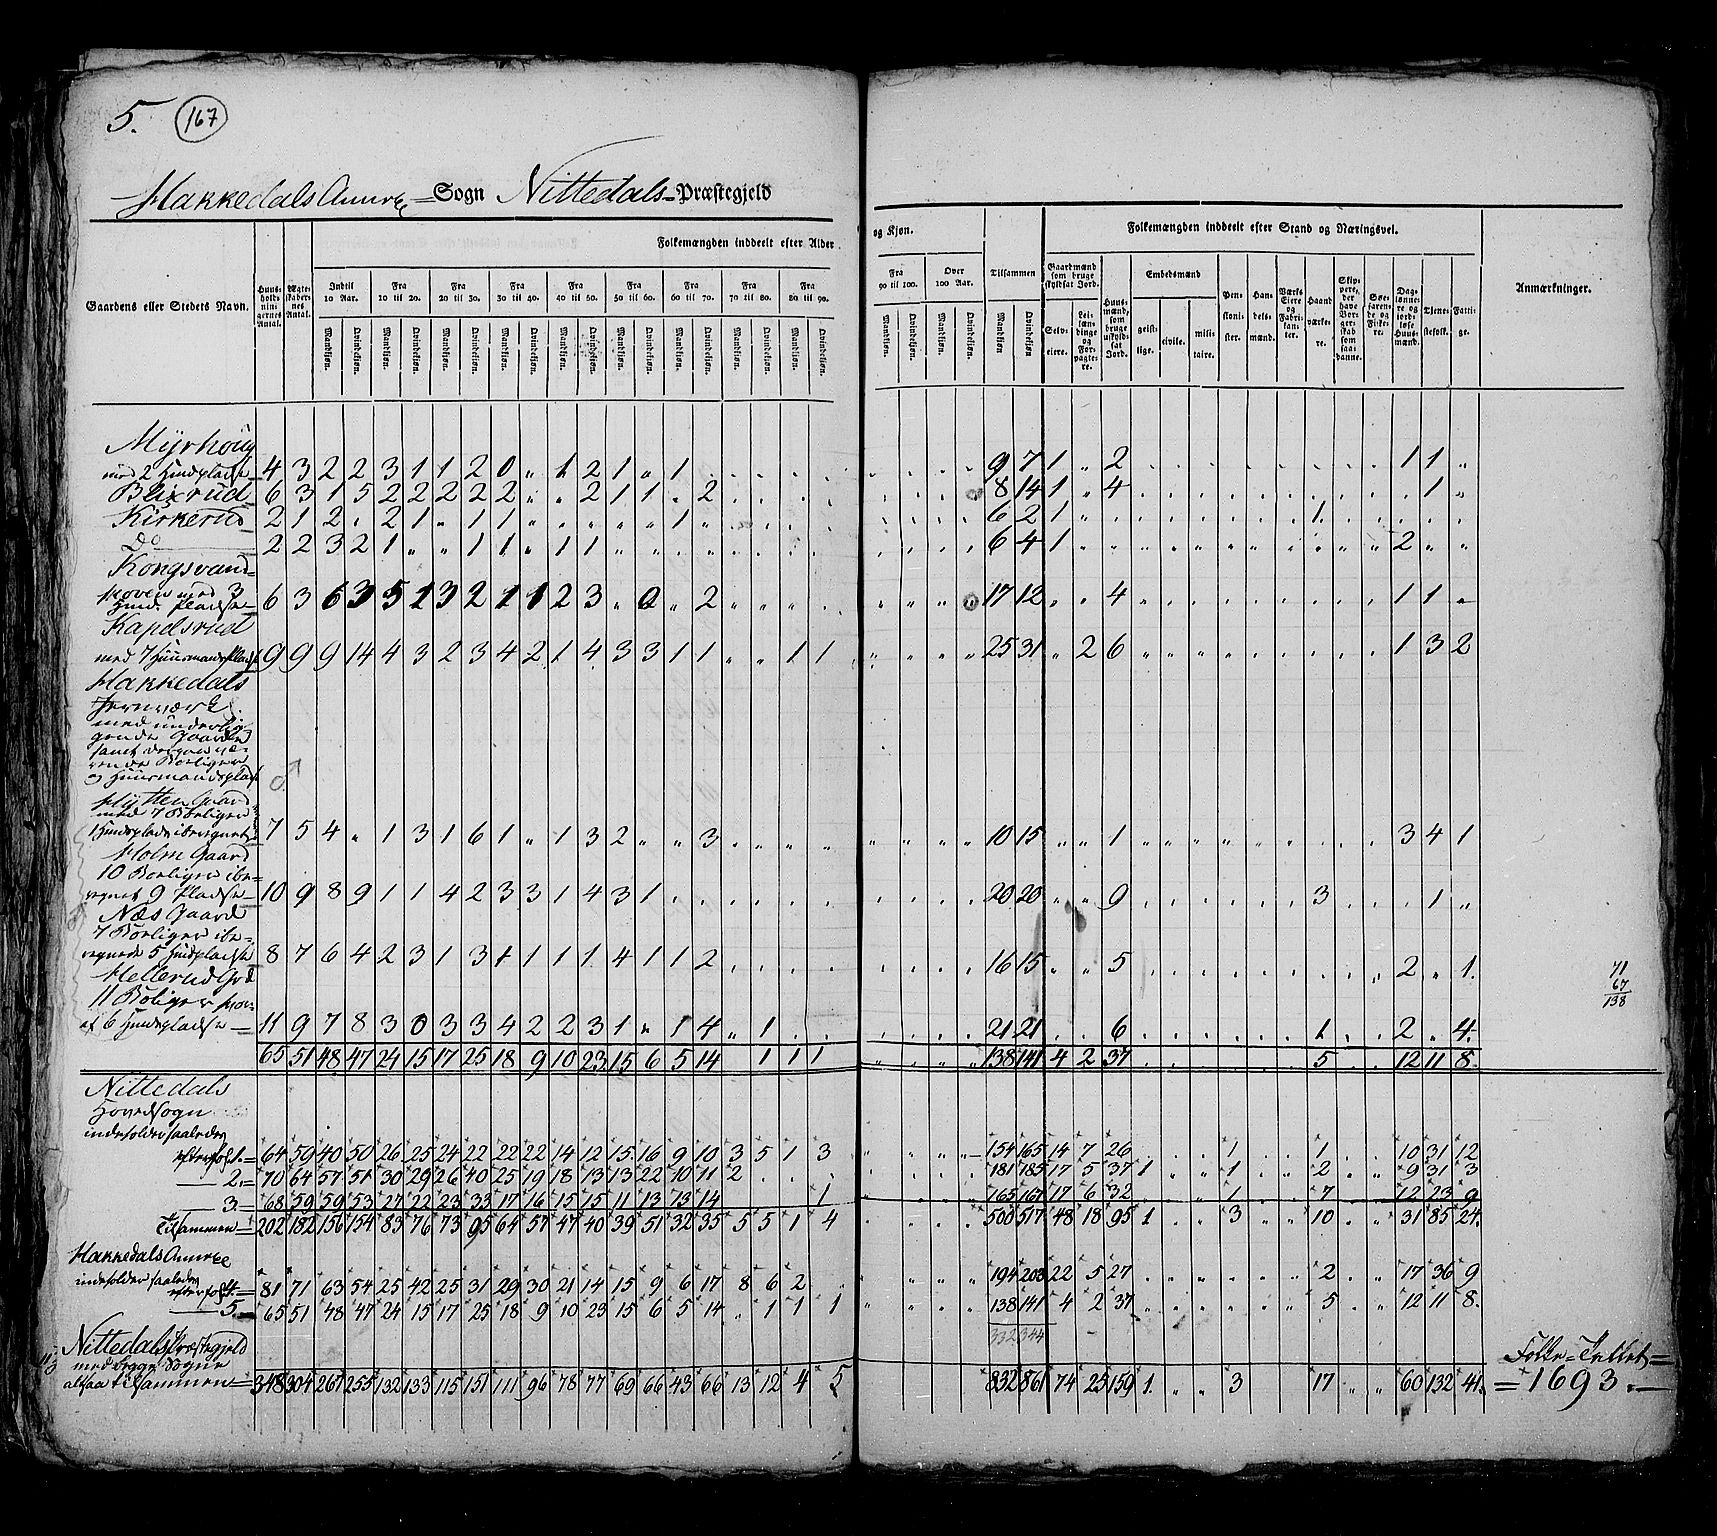 5. 167
Hakkedals Annex = Sogn Nittedals = Præstegjeld
Folkemængden inddeelt efter Alder og Kjøn. Folkemængden inddeelt efter Stand og Næringsvei.
Gaardens eller Stedets Navn. Indtil 10 Aar. Fra 10 til 20. Fra 20 til 30. Fra 30 til 40. Fra 40 til 50. Fra 50 til 60. Fra 60 til 70. Fra 70 til 80. Fra 80 til 90. Fra 90 til 100. Over 100 Aar. Tilsammen Gaardmænd som bruge skyldsat Jord. Embedsmænd Anmærkninger.
Mandkiøn. Qvindekiøn.
Myrhoug
med 2 Huuspladse 4 3 2 2 3 1 1 2 0 " 1 2 1 " 1 9 7 1 " 2 1 1 "
Blixrud 6 3 1 5 2 2 2 2 2 " " 2 1 1 " 2 8 14 1 " 4 1 "
Kirkerud 2 1 2 " 2 1 " 1 1 " " " " " 1 6 2 1 1
Do 2 2 3 2 1 " " 1 1 " 1 1 6 4 1 2 " "
Kongsvand=
skoven med 3
Huus Pladse 6 3 6 3 5 1 3 2 1 1 2 3 " 0 " 2 17 12 " " 4 1 1 "
Kapelsrud
med 7 Huusmandspladse 9 9 9 14 4 3 2 3 4 2 1 4 3 3 1 1 " " 1 1 25 31 " 2 6 1 3 2
Hakkedals
Jernværk
med underlig
gende Gaarde
samt
rende Boliger
og Huusmandsplads
Hytten Gaard
med 7 Boeliger
1 Huusplads iberegnet 7 5 4 " 1 3 1 6 1 " 1 3 2 " " 3 10 15 " " 1 3 4 1
Holm Gaard
10 Boeliger ibe=
regnet 9 Pladse 10 9 8 9 1 1 4 2 3 3 1 4 3 1 20 20 " " 9 3 1 "
Næs Gaard
7 Boeliger ibe=
regnede 5 Huuspladse 8 7 6 4 2 3 1 3 1 1 1 1 4 1 1 2 16 15 " " 5 2 " 1.
Mellerud Grd
11 Boliger hvor=
af 6 Huuspladse 11 9 7 8 3 0 3 3 4 2 2 3 1 " 1 4 " 1 21 21 6 1 2 " 4.
71
67
138
65 51 48 47 24 15 17 25 18 9 10 23 15 6 5 14 1 1 1 138 141 4 2 37 5 12 11 8.
Nittedals
Hovedsogn
indeholder saaledes
efter fol. 1. = 64 59 40 50 26 25 24 22 22 22 14 12 15 16 9 10 3 5 1 3 154 165 14 7 26 1 1 10 31 12
2. = 70 64 57 51 30 29 26 40 25 19 18 13 13 22 10 11 2 181 185 17 5 37 1 1 2 9 31 3
3. = 68 59 59 53 27 22 23 33 17 16 15 15 11 13 13 14 1 165 167 17 6 32 1 7 12 23 9
Tilsammen = 202 182 156 154 83 76 73 95 64 57 47 40 39 51 32 35 5 5 1 4 500 517 48 18 95 1 3 10 31 85 24.
Hakkedals Annex
indeholder saaledes
efter fol. 4. = 81 71 63 54 25 42 25 31 29 30 21 14 15 9 6 17 8 6 2 194 203 22 5 27 2 17 36 9
5. = 65 51 48 47 24 15 17 25 18 9 10 23 15 6 5 14 " 1 1 1 138 141 4 2 37 5 12 11 8.
332 344
Nittedals Præstegjeld
med begge Sogne
altsaa tilsammen = 348 304 267 255 132 133 115 151 111 96 78 77 69 66 43 66 13 12 4 5 832 861 74 25 159 1. 3 17 60 132 41.
Folke=Tallet =
= 1693.